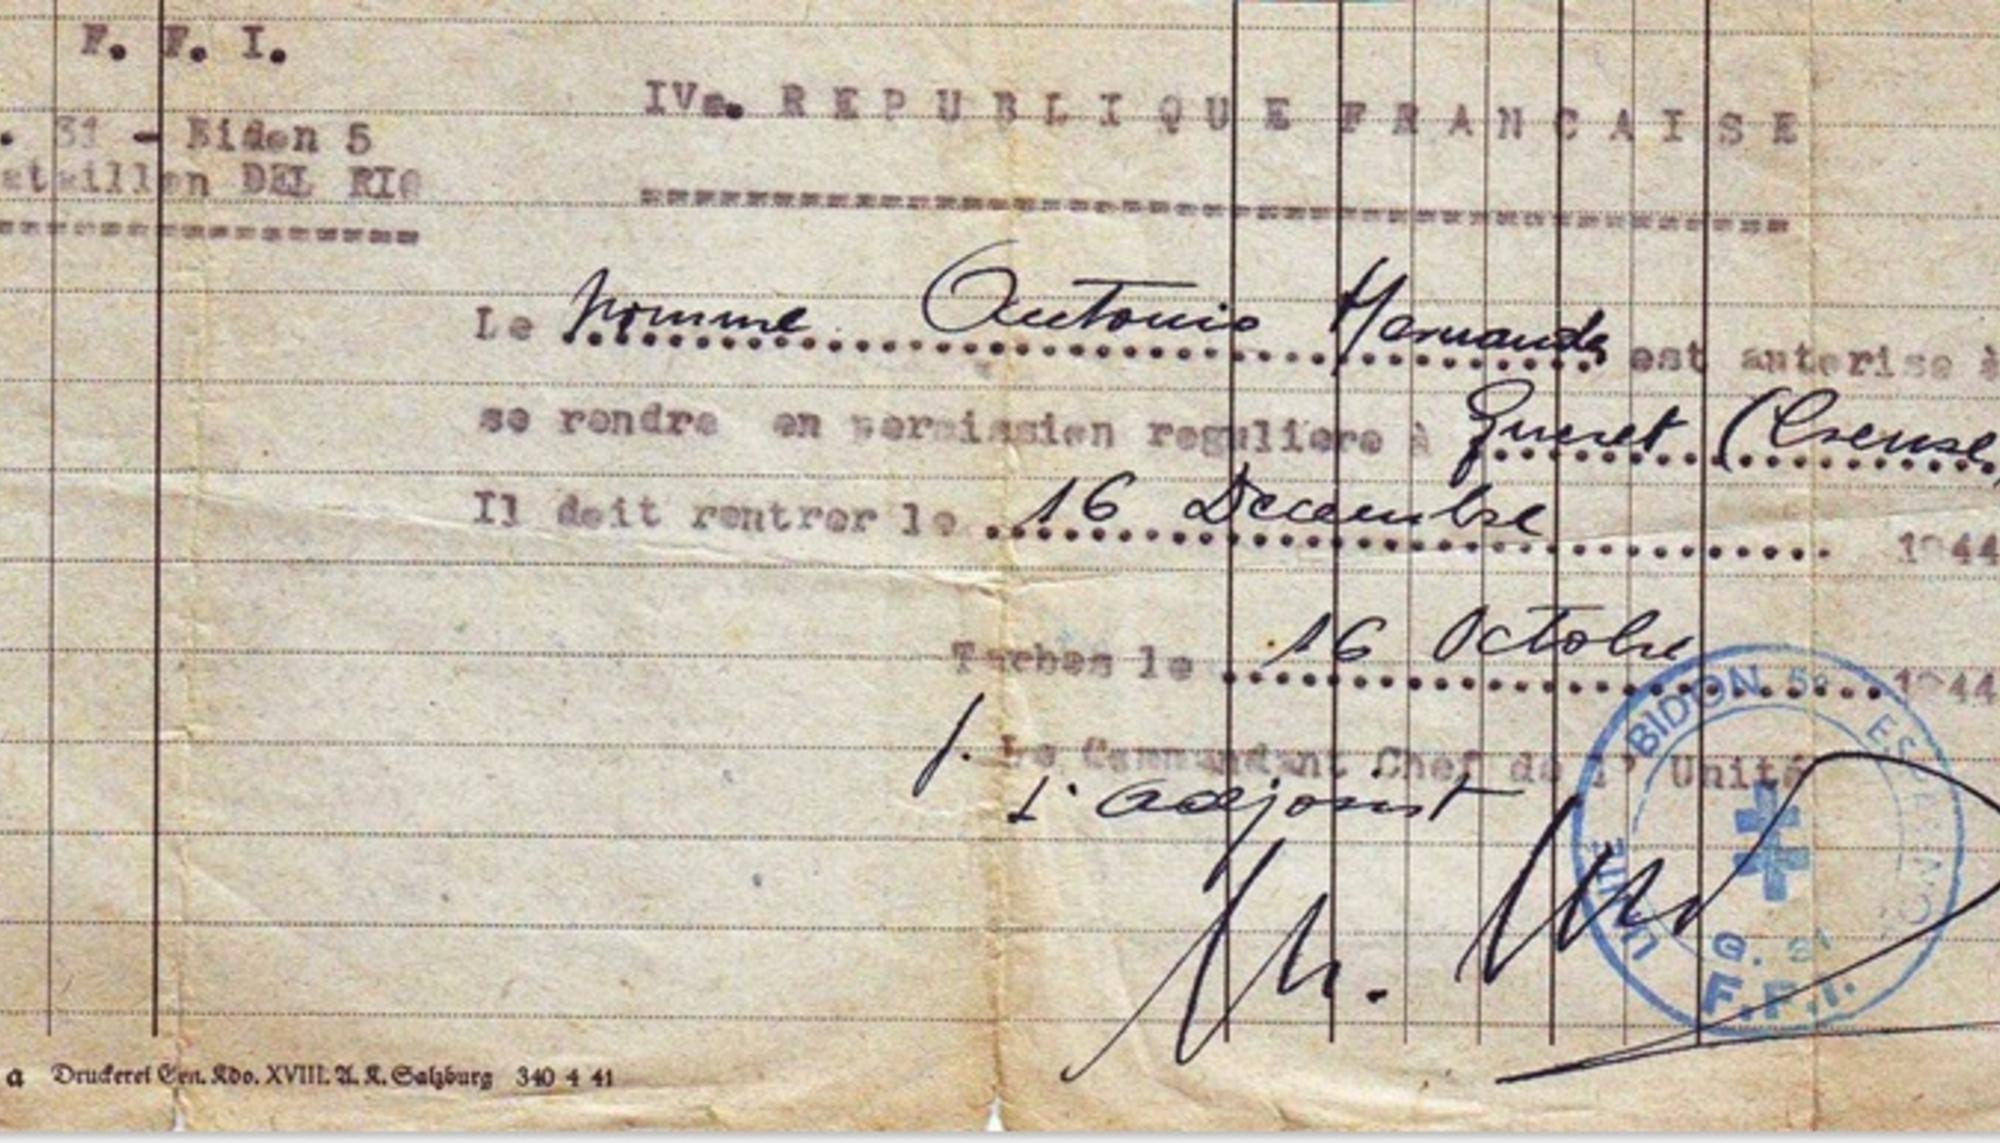 F. F. I.
. 31 - Biden 5
ataillon DEL RIO
IVe. REPUBLIQUE FRANCAISE
Le nommé Antonio Hernandez est autorise à
se rendre en permission reguliere à Gueret (Creuse)
Il doit rentrer le 16 Decembre 1944
Tarbes le 16 Octobre 1944
P. Le Commandant Chef de l' Unité
L'adjoint
UNITE BIDON 5º
G. 31
F.F.I.
a Druckerei Gen. Kdo. XVIII. A. K. Salzburg 340 4 41